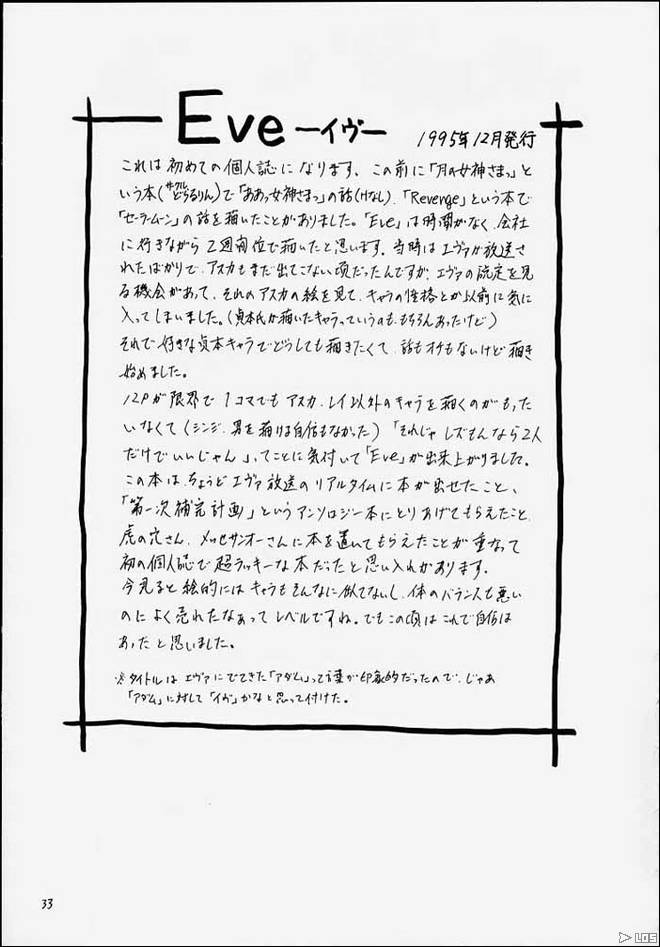 Eve ーイヴー 1995年12月発行
これは初めての個人誌になります。この前に「月の女神さまっ」と
いう本(サークルどらるりん)で「ああっ女神さまっ」の話(Hなし)、「Revenge」という本で
「セーラームーン」の話を描いたことがありました。「Eve」は時間がなく、会社
に行きながら2週間位で描いたと思います。当時はエヴァが放送さ
れたばかりで、アスカもまだ出てこない頃だったんですが、エヴァの設定を見
る機会があって、それのアスカの絵を見て、キャラの性格とか以前に気に
入ってしまいました。(貞本氏が描いたキャラっていうのも、もちろんあったけど)
それで好きな貞本キャラでどうしても描きたくて、話もオチもないけど描き
始めました。
12Pが限界で1コマでもアスカ、レイ以外のキャラを描くのがもった
いなくて(シンジ、男を描ける自信もなかった)「それじゃレズもんなら2人
だけでいいじゃん」ってことに気付いて「Eve」が出来上がりました。
この本は、ちょうどエヴァ放送のリアルタイムに本が出せたこと、
「第一次補完計画」というアンソロジー本にとりあげてもらえたこと、
虎の穴さん、メッセサンオーさんに本を置いてもらえたことが重なって
初の個人誌で超ラッキーな本だったと思い入れがあります。
今見ると絵的にはキャラもそんなに似てないし、体のバランスも悪い
のによく売れたなぁってレベルですね。でもこの頃はこれで自信は
あったと思いました。
※タイトルはエヴァにでてきた「アダム」って言葉が印象的だったので、じゃあ
「アダム」に対して「イヴ」かなと思って付けた。
33
LOS